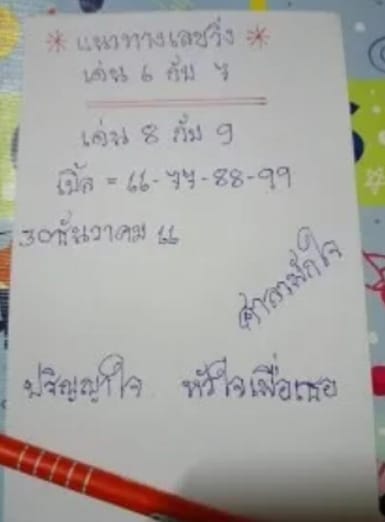 * แนวทางเลขวิ่ง *
เด่น 6 กับ 7
เด่น 8 กับ 9
เบิ้ล = 66-77-88-99
30 ธันวาคม 66
ศาลาพักใจ
ปริญญาใจ หัวใจเพื่อเธอ